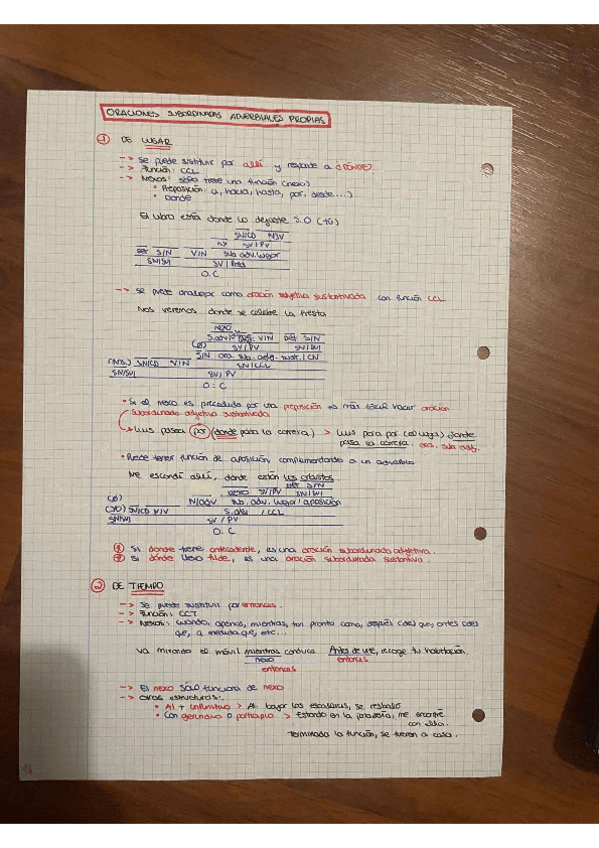 ORACIONES SUBORDINADAS ADVERBIALES PROPIAS
1 DE LUGAR
--> Se puede sustituir por allí y responde a ¿DÓNDE?
--> Función: CCL
--> Nexos: sólo tiene una función (nexo)
• Preposición: a, hacia, hasta, por, desde...)
• Donde
El libro está donde lo dejaste S.O (TÚ)
SN/CD NSV
nx SV/PV
Det S/N VIN sub. adv. lugar
SN/SUJ SV/Pred
O.C
--> Se puede analizar como oración adjetiva sustantivada con función CCL
Nos veremos donde se celebre la fiesta
nexo
VIN Det S/N
(Ø) SV/PV SN/SUJ
S/N ora. sub. adj. sust. / CN
(Nos.) SN/CD VIN SN/CCL
SN/SUJ SV/PV
O.C
• Si el nexo es precedido por una preposición es más fácil hacer oración
subordinada adjetiva sustantivada
Luis pasea por (donde pasa la carrera) > Luis pasa por (el lugar) donde
pasa la carrera. ora. sub. adj.
• Puede tener función de aposición, complementando a un adverbio
Me escondí allí, donde están los arbustos
Det S/N
nexo SV/PV SN/SUJ
(Ø) N/ADV sub. adv. lugar / aposición
(Yo) SN/CD NIV S.adv / CCL
SN/SUJ SV/PV
O.C
1 Si donde tiene antecedente, es una oración subordinada adjetiva.
2 Si dónde lleva tilde, es una oración subordinada sustantiva.
2 DE TIEMPO
--> Se puede sustituir por entonces.
--> Función: CCT
--> Nexos: cuando, apenas, mientras, tan pronto como, después (de) que, antes (de)
que, a medida que, etc...
Va mirando el móvil mientras conduce Antes de irte, recoge tu habitación.
nexo entonces
entonces
--> El nexo sólo funciona de nexo
--> Otras estructuras:
• Al + infinitivo > Al bajar las escaleras, se resbaló
• Con gerundio o participio > Estando en la panadería, me encontré
con ella.
Terminada la función, se fueron a casa.